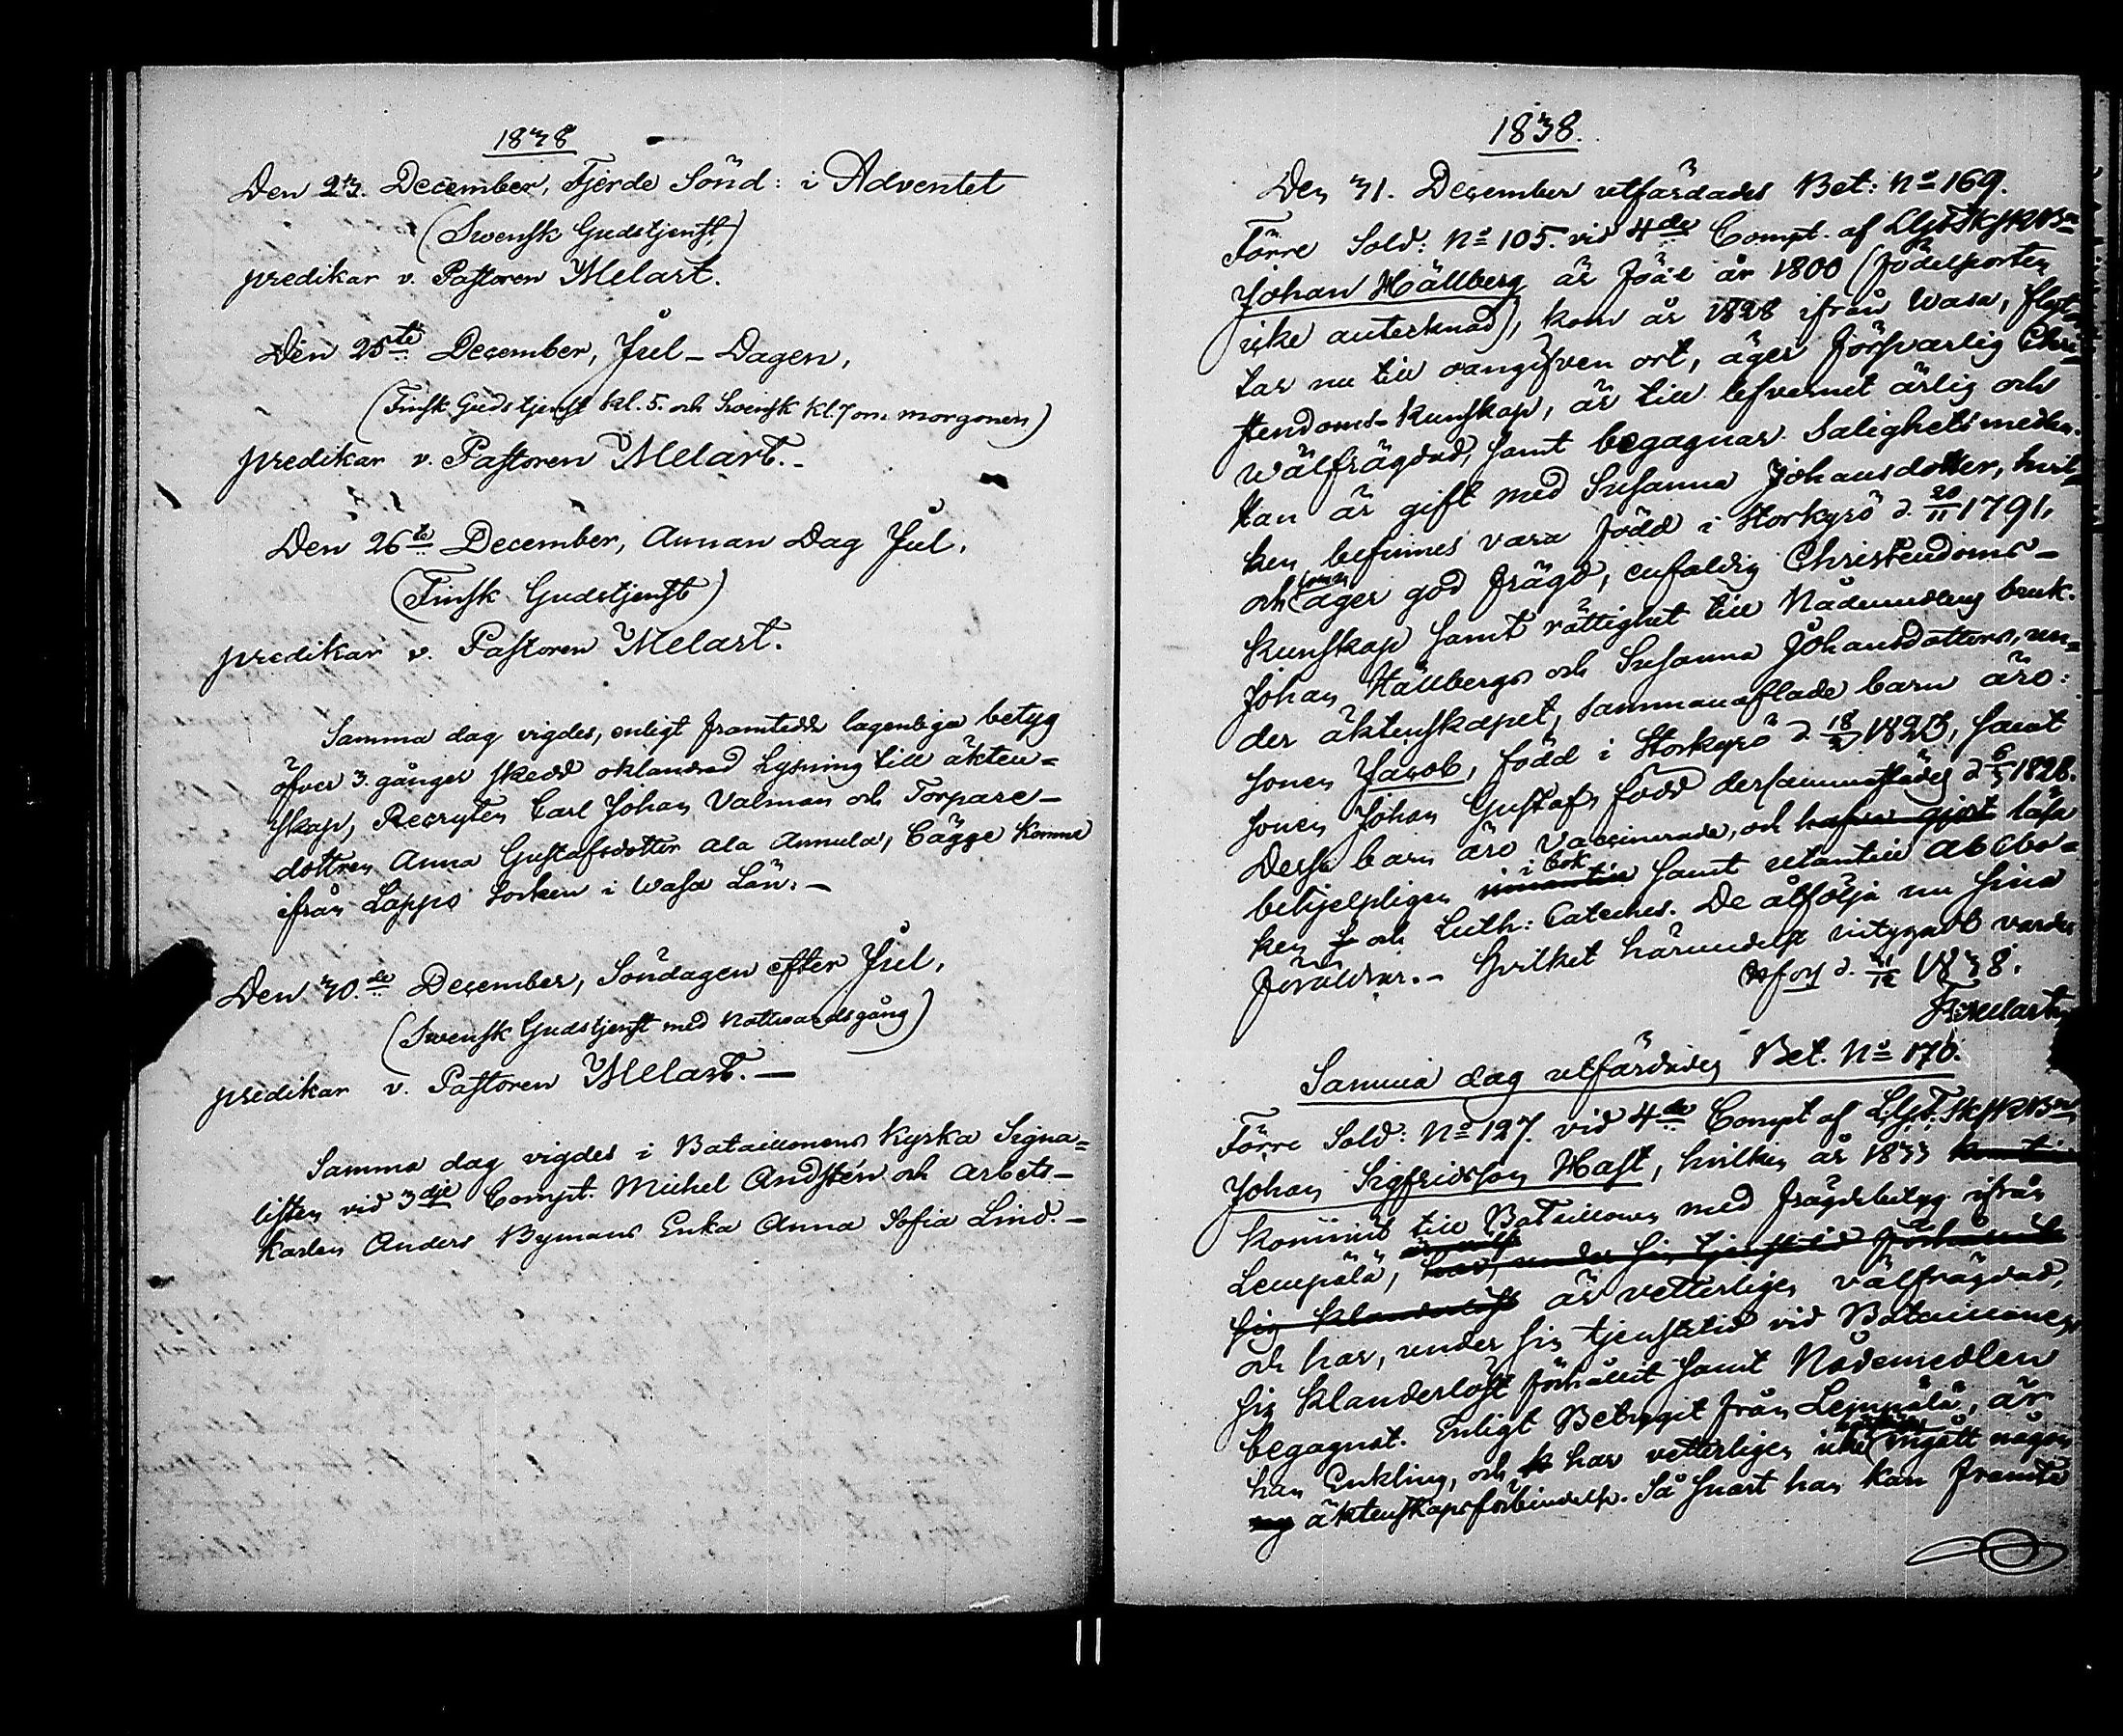 1838
Den 23. December, Fjerde Sönd: i Adventet
(Swensk Gudstjenst)
predikar v. Pastoren Melart.
Den 25te December, Jul-Dagen,
(Finsk Gudstjenst kl. 5. och Svensk kl. 7 om morgonen)
predikar v. Pastoren Melart.-
Den 26te December, Annan Dag Jul,
(Finsk Gudstjenst)
predikar v. Pastoren Melart.
Samma dag vigdes, enligt framtedde lagenliga betyg
öfver 3. gånger skedd oklandrad Lysning till äkten=
skap, Recryten Carl Johan Valman och Torpare-
dottren Anna Gustafsdotter Ala Annula, bägge komne
ifrån Lappo Socken i Wasa Län.-
Den 30.de December, Söndagen efter Jul,
(Swensk Gudstjenst med Nattvardsgång)
predikar v. Pastoren Melart.-
Samma dag vigdes i Bataillonens Kyrka Signa=
listen vid 3dje Compt. Michel Andstén och Arbets-
karlen Anders Bymans Enka Anna Sofia Lind.-
1838.
Den 31. December utfärdades Bet: No 169.
Förre Sold: No 105. vid 4de Compt. af
Johan Hällberg är född år 1800 (födelseorten
icke antecknad), kom år 1828 ifrån Wasa, flyt=
tar nu till oangifven ort, äger försvarlig Chri=
stendoms-kunskap, är till lefvernet ärlig och
wälfrägdad, samt begagnar Salighetsmedlen.
Han är gift med Susanna Johansdotter, hvil=
ken befinnes vara född i Storkyrö d. 20/11 1791,
och äger god frägd, enfaldig Christendoms-
kunskap samt rättighet till Nådemedlens bruk.
Johan Hällbergs och Susanna Johansdotters, un=
der äktenskapet, sammanaflade barn äro:
sonen Jacob, född i Storkyrö d. 18/3 1825, samt
sonen Johan Gustaf, född dersammastädes d 1828.
Dessa barn äro Vaccinerade, och hafva gjort läsa
behjelpligen innantill i bok samt utantill abcbo=
ken och Luth: Cateches. De åtfölja nu sina
föräldrar.- Hvilket härmedelst intygadt varder
d. 31/12 1838.
F: Melart
Samma dag utfärdades Bet. No 170.
Förre Sold: No 127. vid 4de Compt af
Johan Sigfridsson Hast, hvilken år 1833
kommit till Bataillonen med frägdebetyg ifrån
Lempälä, har, under sin tjenstetid förhållit
sig klanderlöst är vetterligen välfrägdad,
och har, under sin tjenstetid vid Bataillonen,
sig klanderlöst förhållit samt Nådemedlen
begagnat. Enligt Betyget från Lempälä, är
han Enkling, och har vetterligen icke ingått någon
äktenskapsförbindelse. Så snart han kan framte